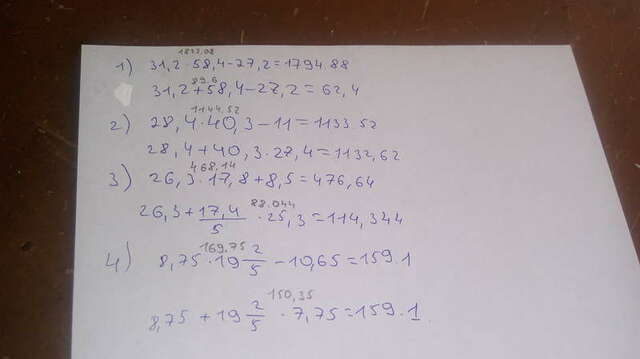 1822,08
1) 31,2 · 58,4 - 27,2 = 1794 88
89 6
31,2 + 58,4 - 27,2 = 62,4
1144,52
2) 28,4 · 40,3 - 11 = 1133 52
28,4 + 40,3 · 27,4 = 1132,62
468,14
3) 26,3 · 17,8 + 8,5 = 476,64
88.044
26,3 + 17,4/5 · 25,3 = 114,344
169,75
4) 8,75 · 19 2/5 - 10,65 = 159.1
150,35
8,75 + 19 2/5 · 7,75 = 159.1